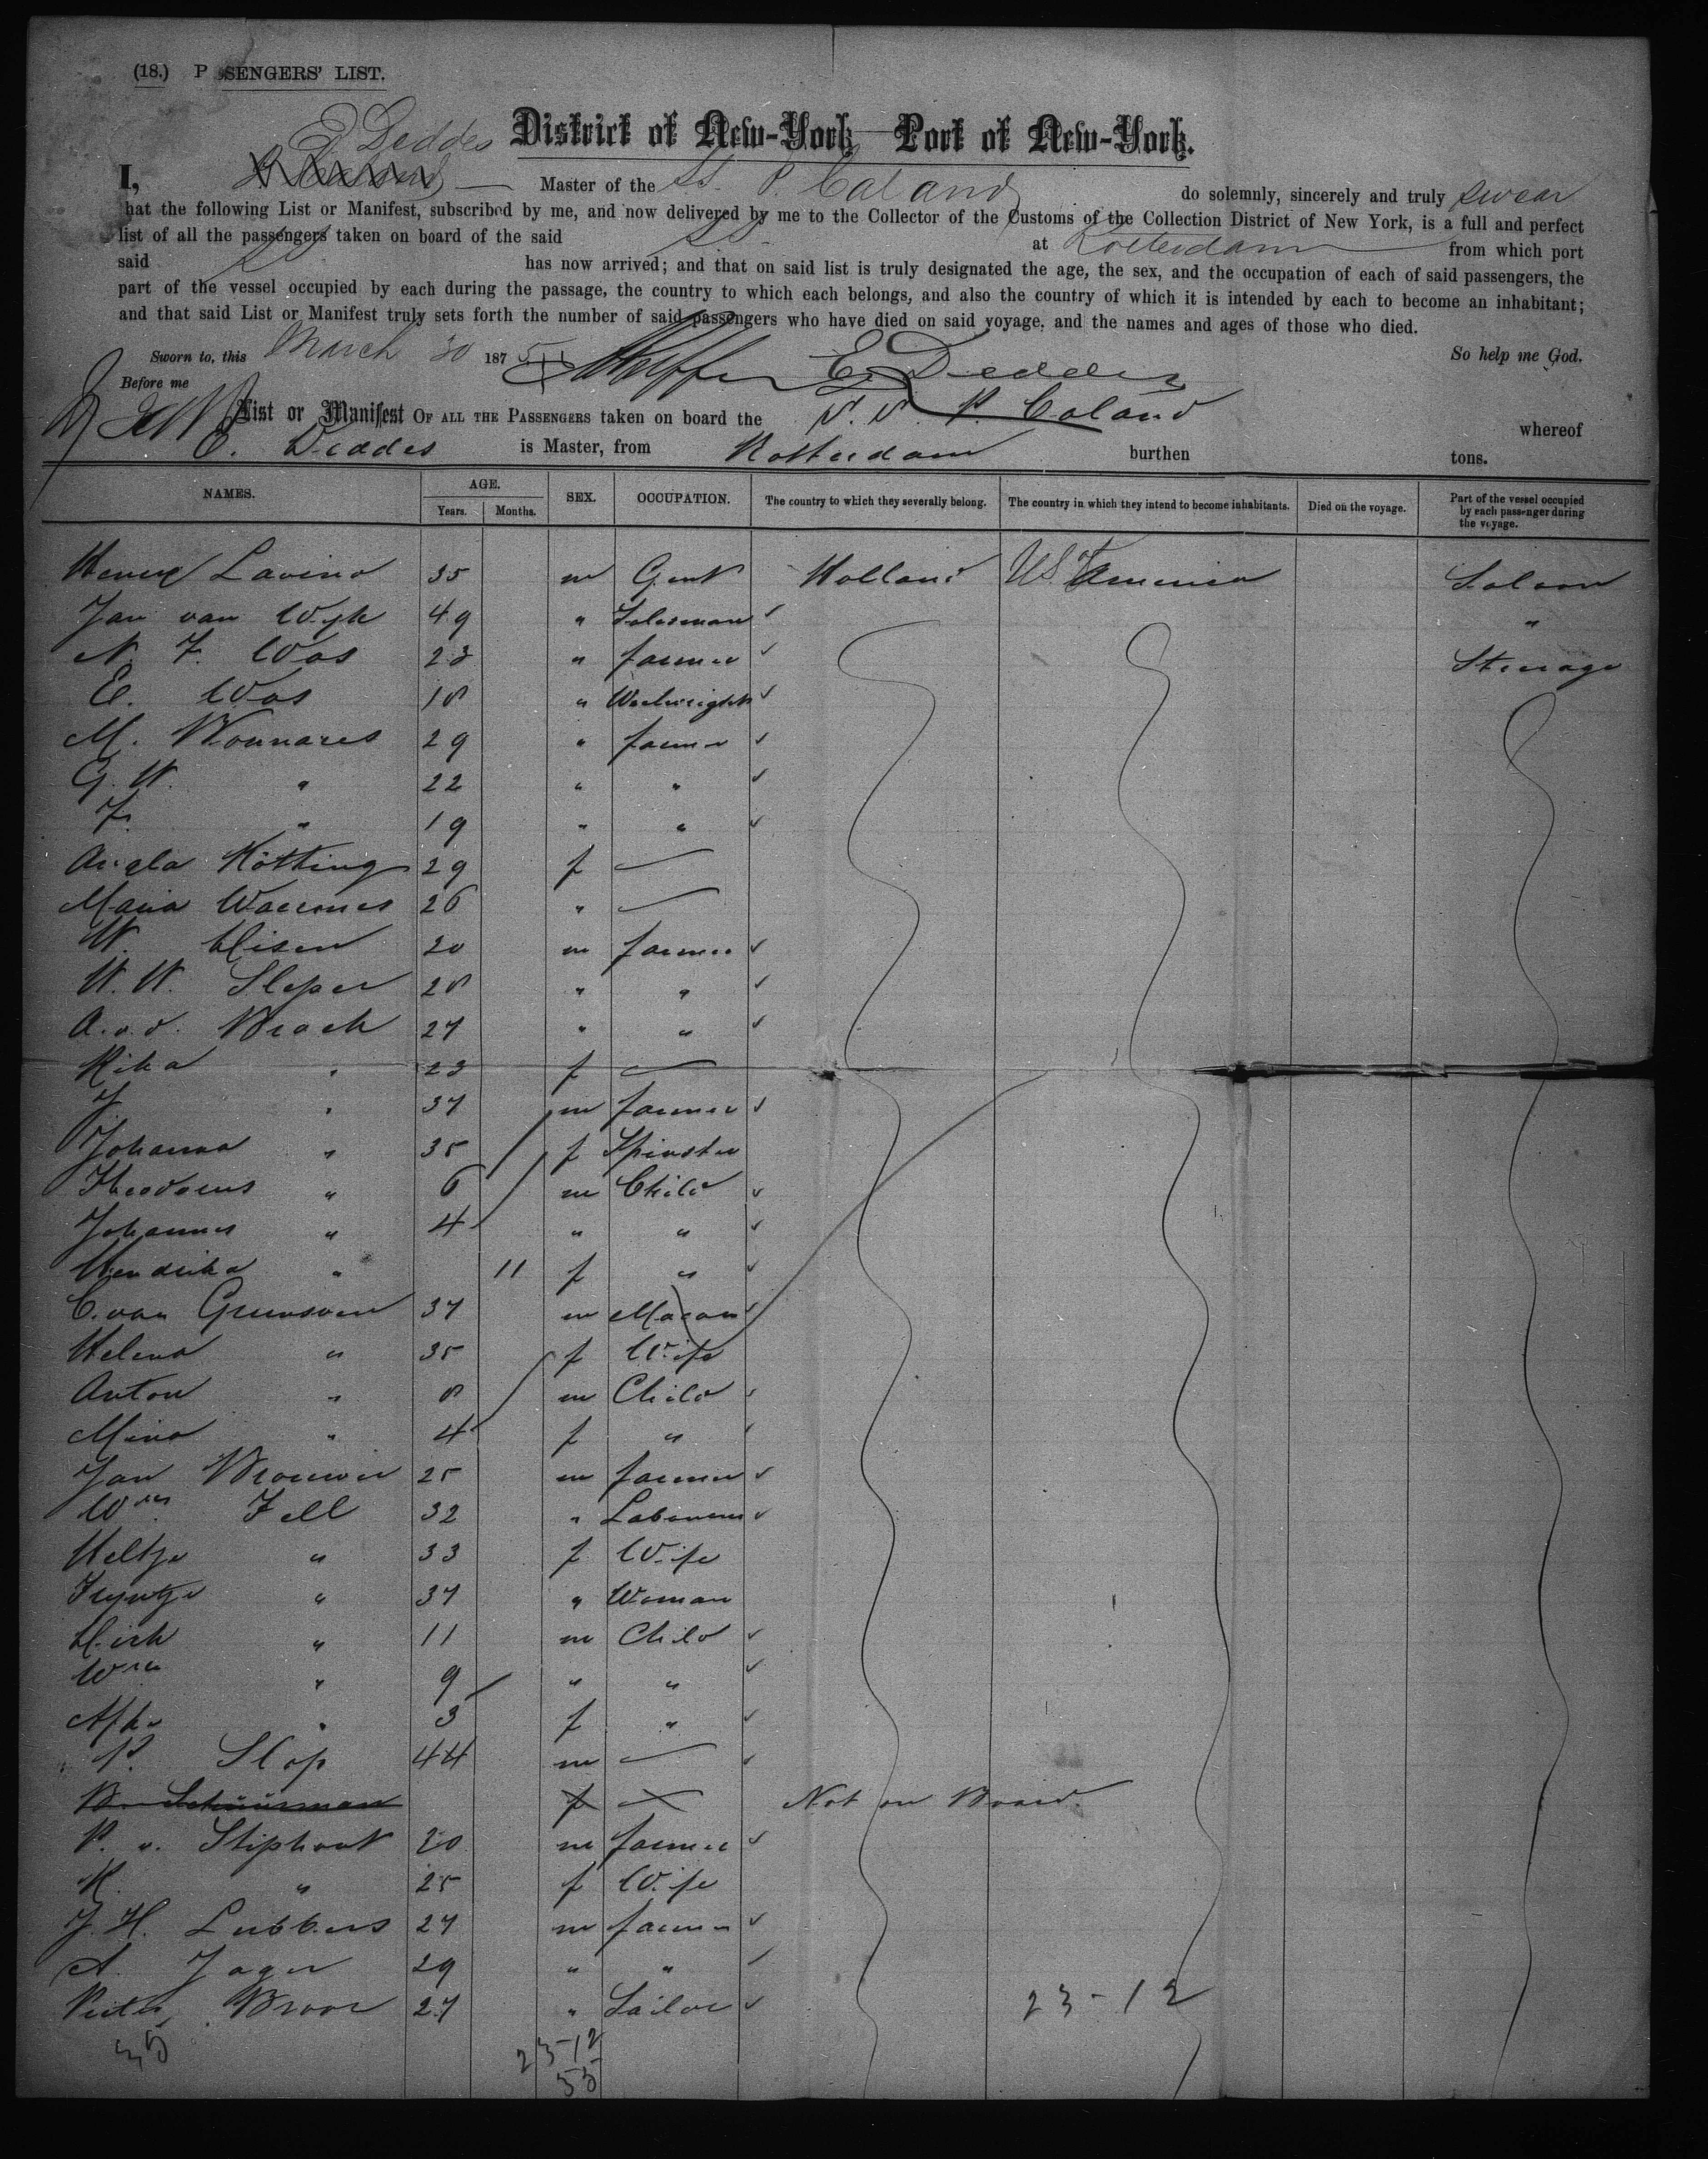 (18.) P SSENGERS' LIST.
E Deddes
District of New-York Port of New-York.
I, Master of the SS. P. Caland do solemnly, sincerely and truly swear
hat the following List or Manifest, subscribed by me, and now delivered by me to the Collector of the Customs of the Collection District of New York, is a full and perfect
list of all the passengers taken on board of the said SS at Rotterdam from which port
said SS has now arrived; and that on said list is truly designated the age, the sex, and the occupation of each of said passengers, the
part of the vessel occupied by each during the passage, the country to which each belongs, and also the country of which it is intended by each to become an inhabitant;
and that said List or Manifest truly sets forth the number of said passengers who have died on said voyage, and the names and ages of those who died.
Sworn to, this March 30 1875 So help me God.
Before me E. Deddes
List or Manifest OF ALL THE PASSENGERS taken on board the S. S. P. Caland whereof
E. Deddes is Master, from Rotterdam burthen tons.
NAMES. AGE. SEX. OCCUPATION. The country to which they severally belong. The country in which they intend to become inhabitants. Died on the voyage. Part of the vessel occupied by each passenger during the voyage.
Years. Months.
Lavino 35 m Gent Holland US of America Saloon
Jan van Wyk 49 " Salesman "
N. F. Vos 23 " farmer Steerage
E. Vos 18 " Weelwright
M. 29 " farmer
G. H. " 22 " "
F. " 19 " "
Angla Kötting 29 f —
Maria 26 " —
H. 20 m farmer
H. H. Sleper 28 " "
A. v. d. Brock 27 " "
Rika " 23 f —
J " 37 m farmer
Johanna " 35 f Spinster
Theodorus " 6 m Child
Johannes " 4 " "
Hendrika " 11 f "
C. van Grunsven 37 m Mason
Helena " 35 f Wife
Anton " 8 m Child
Mina " 4 f "
Jan Brouwer 25 m farmer
Wm. Fell 32 " Labourer
Heltje " 33 f Wife
Tryntje " 37 " Woman
Dirk " 11 m Child
Wm " 9 " "
Afke " 3 f "
P. Slop 44 m —
B. Schüürman f — Not on Board.
P. v. Stiphout 20 m farmer
K. " 25 f Wife
J. H. Lubbers 27 m farmer
A. Jager 29 " "
Pieter Broor 27 " Sailor
23-12
35 23-12
35